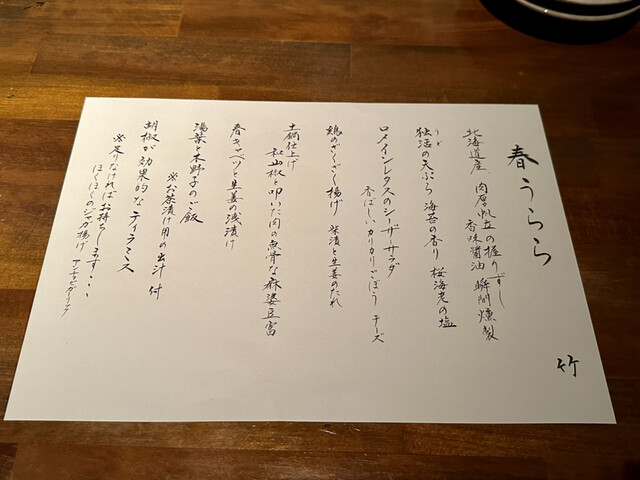 春うらら
竹
北海道産 肉厚帆立の握りずし
香味醤油 瞬間燻製
うど
独活の天ぷら 海苔の香り 桜海老の塩
ロメインレタスのシーザーサラダ
香ばしいカリカリごぼう チーズ
鶏のざくざく揚げ 茶漬と生姜のたれ
土鍋仕上げ
和山椒と叩いた肉の無骨な麻婆豆富
春キャベツと生姜の浅漬け
湯葉と木野子のご飯
※お茶漬け用の出汁 付
胡椒が効果的なティラミス
※足りなければお持ちします・・・
ほくほくのジャガ揚げ アンチョビガーリック